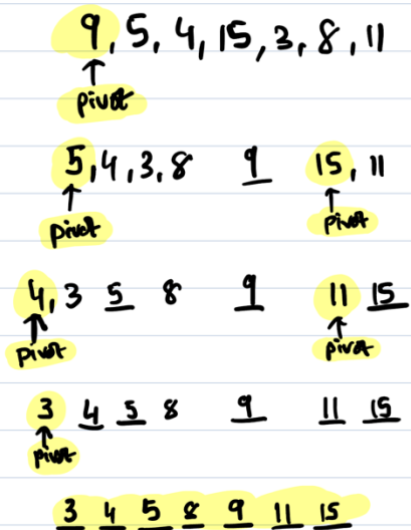 9, 5, 4, 15, 3, 8, 11
pivot
5, 4, 3, 8 9 15, 11
pivot pivot
4, 3 5 8 9 11 15
pivot pivot
3 4 5 8 9 11 15
pivot
3 4 5 8 9 11 15